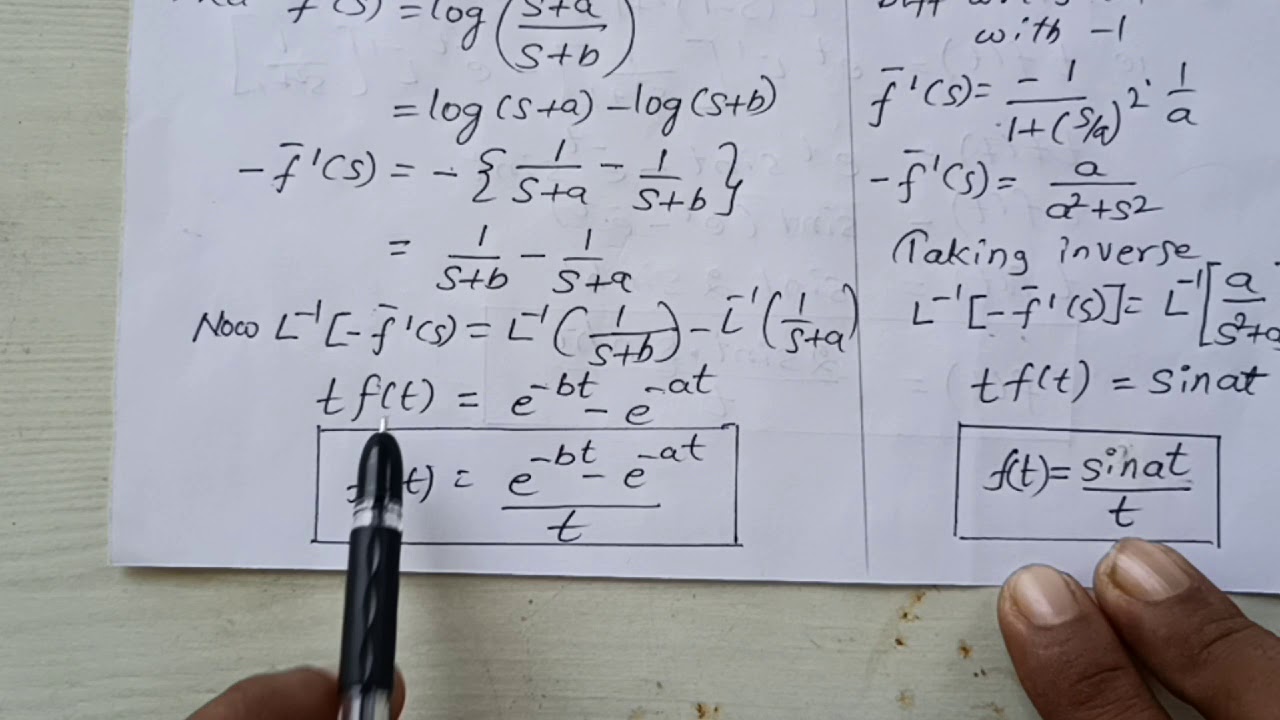 f̄(s) = log((s+a)/(s+b))
= log(s+a) - log(s+b)
-f̄'(s) = -{1/(s+a) - 1/(s+b)}
= 1/(s+b) - 1/(s+a)
Now L⁻¹[-f̄'(s) = L⁻¹(1/(s+b)) - L⁻¹(1/(s+a))
t f(t) = e^{-bt} - e^{-at}
f(t) = (e^{-bt} - e^{-at})/t
with -1
f̄'(s) = -1/(1+(s/a)²) · 1/a
-f̄'(s) = a/(a²+s²)
Taking inverse
L⁻¹[-f̄'(s)] = L⁻¹[a/(s²+a
t f(t) = sinat
f(t) = sinat/t